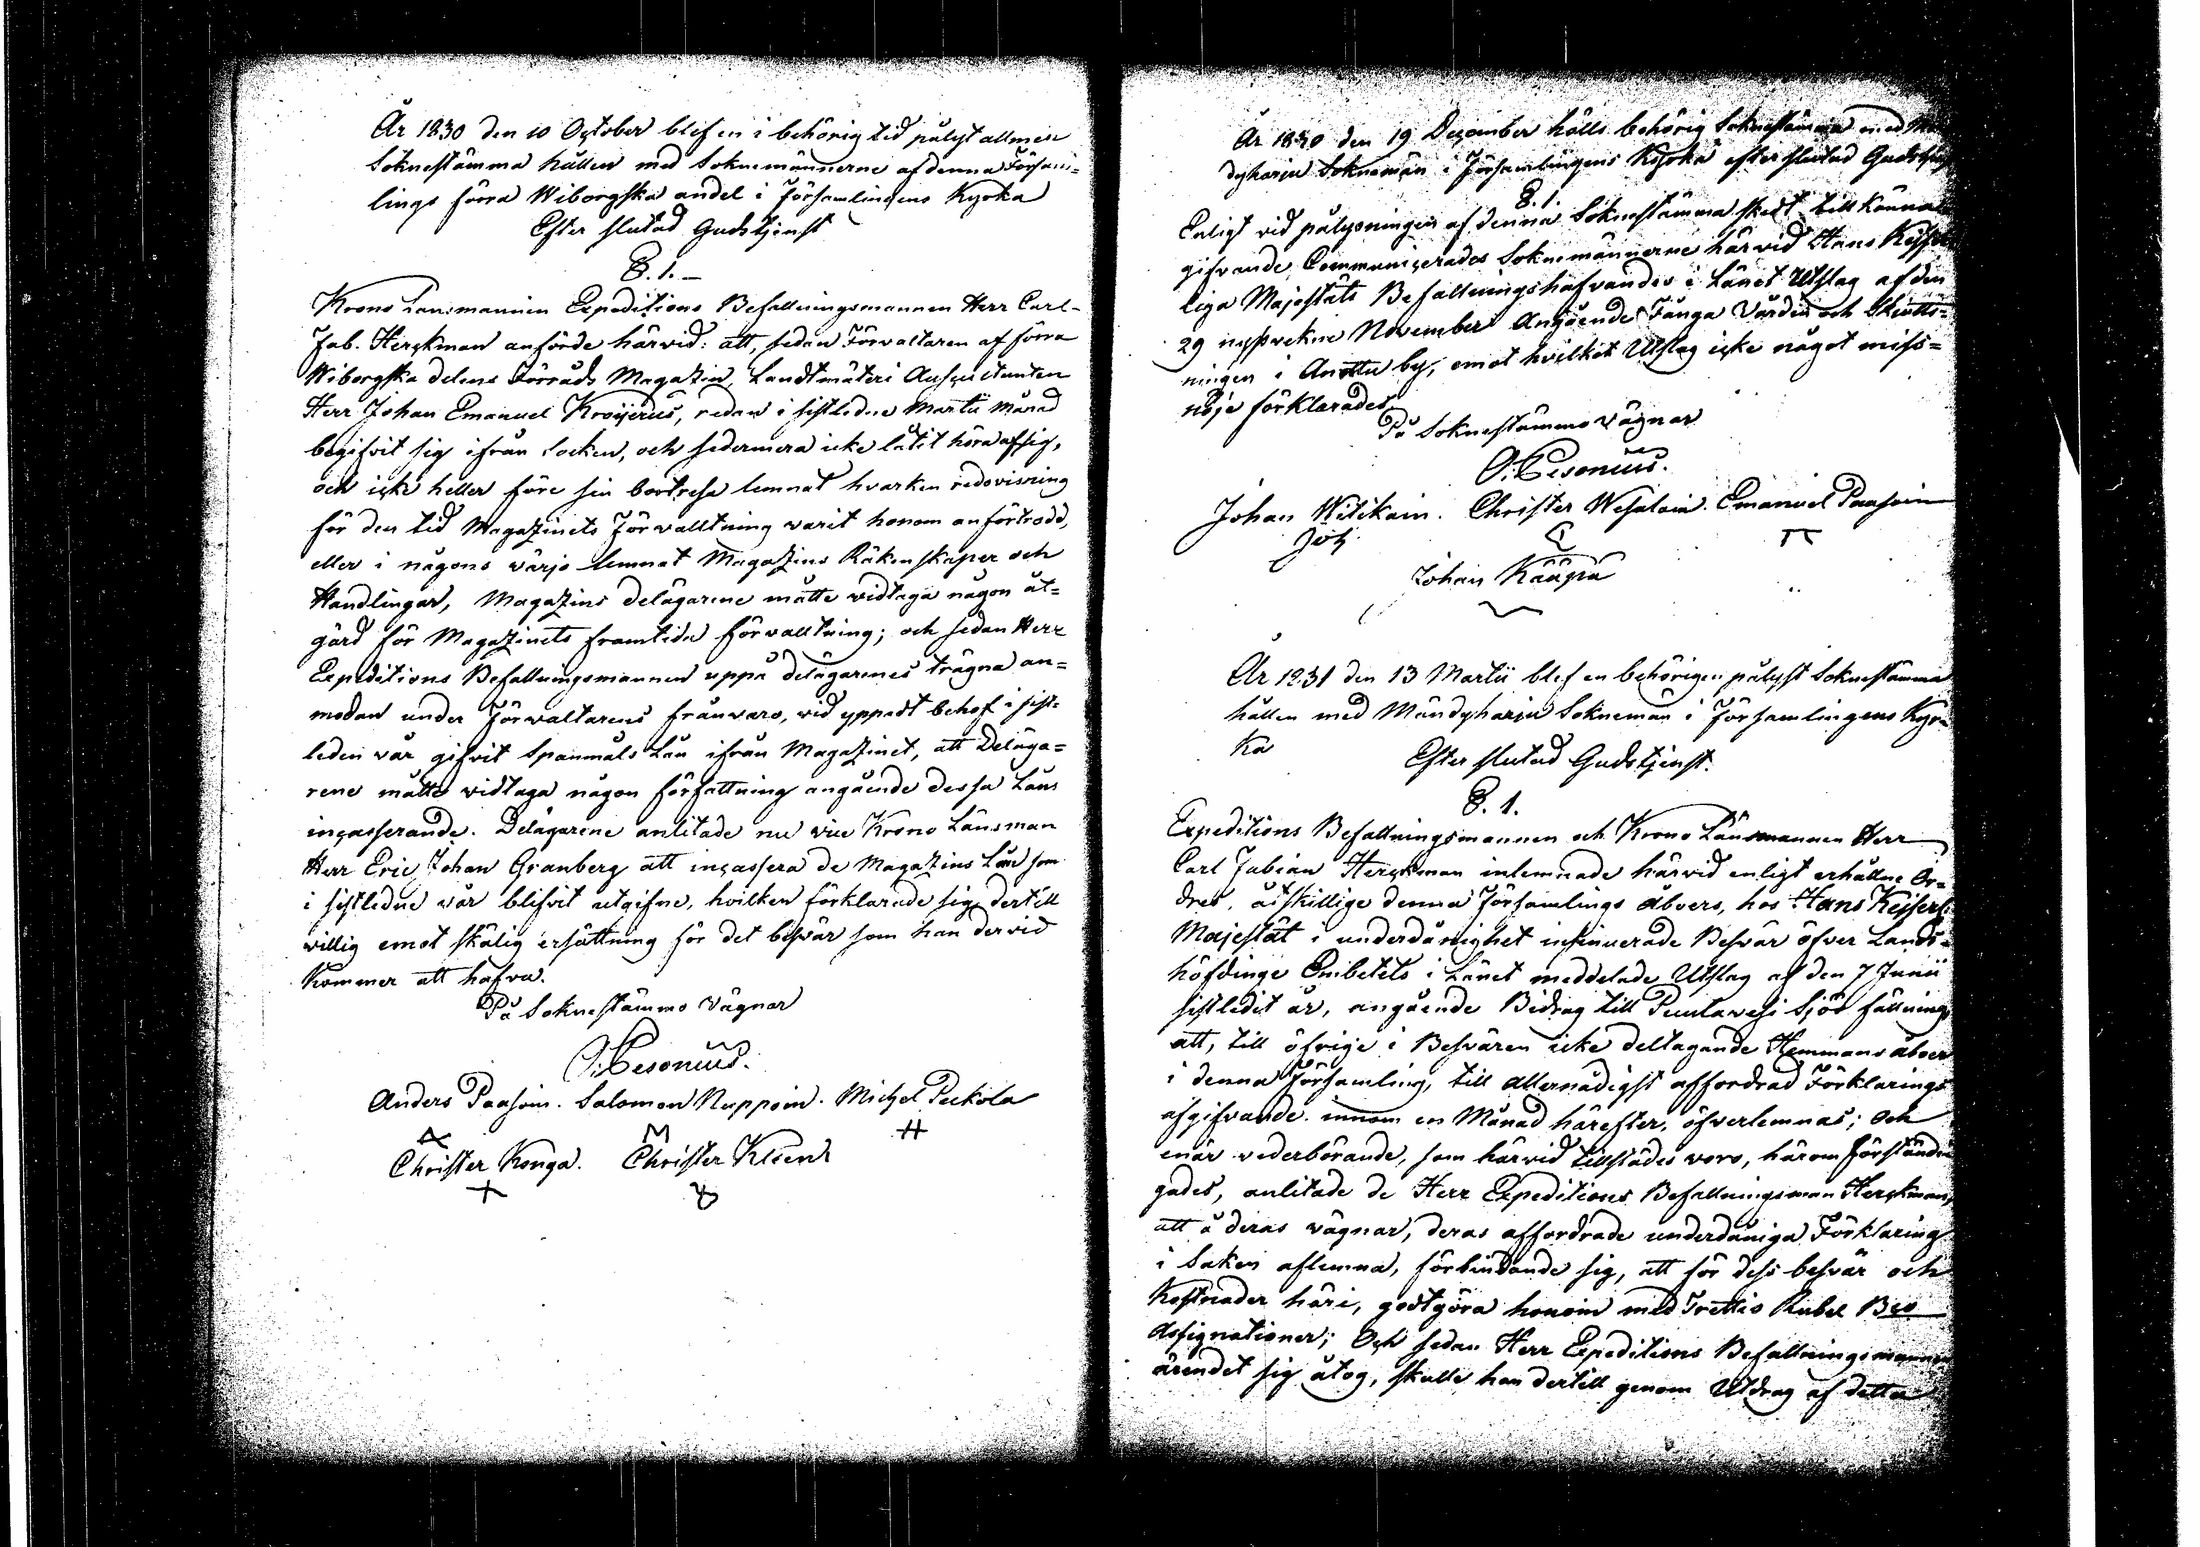 År 1830 den 10 October blef en i behörig tid pålyst allmen
Soknestämma hållen med Soknemännerne af denna Försam-
lings förra Wiborgska andel i Församlingens Kyrka
Efter slutad Gudstjenst
§. 1.
Krono Länsmannen Expeditions Befallningsmannen Herr Carl
Fab. Herckman anförde härvid: att, sedan Förvaltaren af förra
Wiborgska delens Förråds Magazin, Landtmäteri Auscultanten
Herr Johan Emanuel Kroijerus, redan i sistledne Martii månad
begifvit sig ifrån socken, och sedermera icke låtit höra af sig,
och icke heller före sin bortresa lemnat hvarken redovisning
för den tid Magazinets Förvalltning varit honom anförtrodd,
eller i någons värjo lemnat Magazins Räkenskaper och
Handlingar, Magazins delägarene måtte vidtaga någon åt-
gärd för Magazinets framtida förvalltning; och sedan Herr
Expeditions Befallningsmannen uppå delägarenes trägna an-
modan under Förvaltarens frånvaro, vid yppadt behof i sist-
leden vår gifvit Spanmåls Lån ifrån Magazinet, att Deläga-
rene måtte vidtaga någon författning angående dessa Låns
incasserande. Delägarene anlitade nu vice Krono Länsman
Herr Eric Johan Granberg att incassera de Magazins Lån som
i sistledne vår blifvit utgifne, hvilken förklarade sig dertill
villig emot skälig ersättning för det besvär som han dervid
Kommer att hafva.
På Soknestämmo Vägnar
O. Cesonius.
Anders Paasoin. Salomon Nuppoin. Michel Pukola
Christer Konga. Christer Kleent
År 1830 den 19 December hölls behörig Soknestämma med Män
dyharju Soknemän i Församlingens Kyrka efter slutad Gudstjenst
§. 1.
Enligt vid pålysningen af denna Soknestämma skedt till känna
gifvande Communicerades Soknemännerne härvid Hans Kejser
liga Majestäts Befallningshafvandes i Länet Utslag af den
29 nyssvekne November Angående Fånga Vården och Skiutts-
ningen i Anttu by, emot hvilket Utslag icke något miss-
nöje förklarades.
På Soknestämmo Vägnar
O. Cesonius.
Johan Witikain. Christer Wesalain. Emanuel Paasoin
Johan Kääpä
År 1831 den 13 Martii blef en behörigen pålyst Soknestämma
hållen med Mändyharju Soknemän i Församlingens Kyr-
Ka
Efter slutad Gudstjenst.
§. 1.
Expeditions Befallningsmannen och Krono Länsmannen Herr
Carl Fabian Herckman inlemnade härvid enligt erhållne Or-
dres, åtskillige denna Församlings åboers, hos Hans Kejserl.
Majestät i underdånighet insinuerade Besvär öfver Lands-
höfdinge Embetets i Länet meddelade Utslag af den 7 Junii
sistledit år, angående Bidrag till Puulavesi Sjös fällning,
att, till öfrige i Besvären icke deltagande Hemmans åboer
i denna Församling, till allernådigst affordrad Förklarings
afgifvande innom en Månad härefter, öfverlemnas; Och
enär vederbörande, som härvid tillstädes voro, härom förständi
gades, anlitade de Herr Expeditions Befallningsman Herckman,
att å deras vägnar, deras affordrade underdåniga Förklaring
i Saken aflemna, förbindande sig, att för dess besvär och
Kostnader häri, godtgöra honom med Trettio Rubel Bco
Assignationer; Och sedan Herr Expeditions Befallningsmannen
ärendet sig åtog, skulle han dertill genom Utdrag af detta